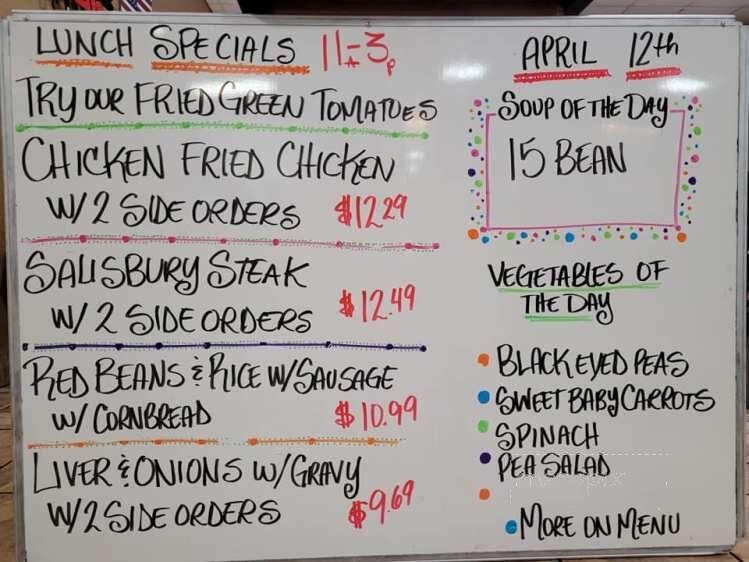 LUNCH SPECIALS 11A-3P
TRY OUR FRIED GREEN TOMATOES
CHICKEN FRIED CHICKEN
W/ 2 SIDE ORDERS $12.29
SALISBURY STEAK
W/ 2 SIDE ORDERS $12.49
RED BEANS & RICE W/ SAUSAGE
W/ CORNBREAD $10.99
LIVER & ONIONS W/ GRAVY
W/ 2 SIDE ORDERS $9.69
APRIL 12th
SOUP OF THE DAY
15 BEAN
VEGETABLES OF
THE DAY
BLACK EYED PEAS
SWEET BABY CARROTS
SPINACH
PEA SALAD
MORE ON MENU